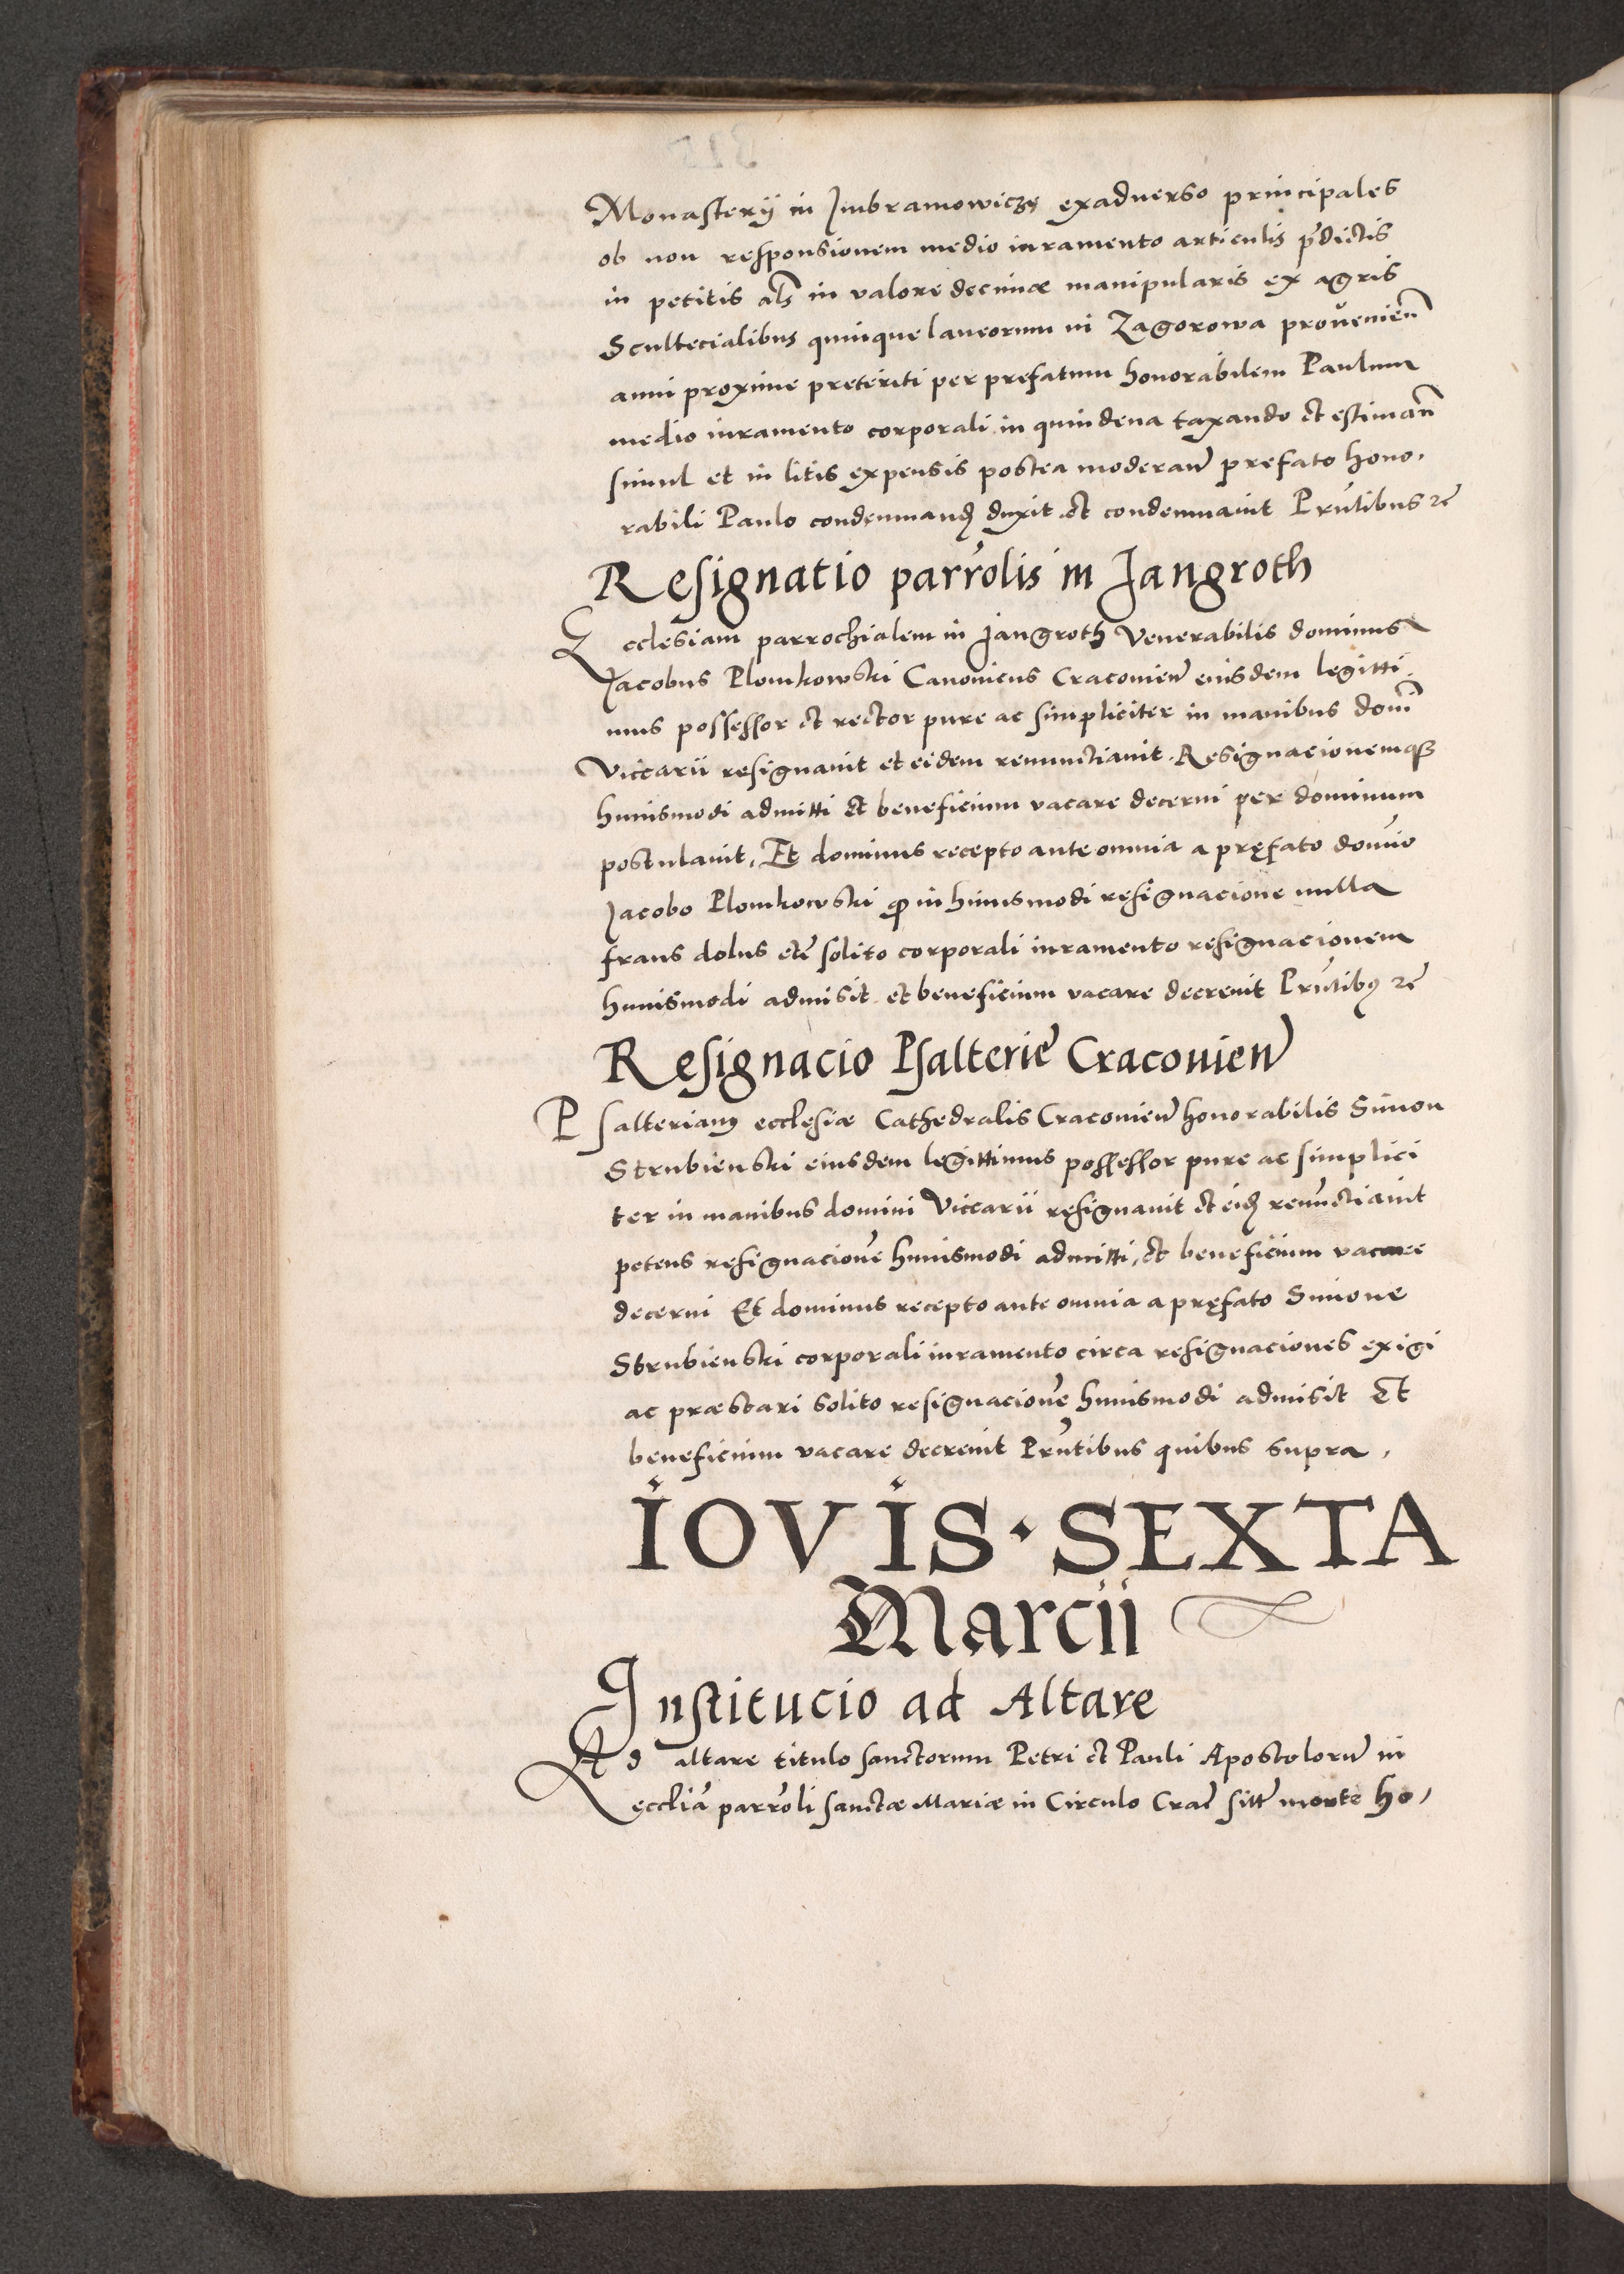 Monasterij in Imbramowiczs exaduerso principales
ob non responsionem medio iuramento articulis p̄dictis
in petitis als in valore decimæ manipularis ex agris
Scultecialibus quinque laneorum in Zagorowa prouenieñ
anni proxime preteriti per prefatum honorabilem Paulum
medio iuramento corporali in quindena taxando et estimañ
simul et in litis expensis postea moderañ prefato hono,
rabili Paulo condemnanđ duxit et condemnauit Pr̃ntibus rc̃
Resignatio parr̃olis in Jangroth
Ecclesiam parrochialem in Jangroth Venerabilis dominus
Jacobus Plomkowski Canonicus Cracovieñ eiusdem legitti,
mus possessor et rector pure ac simpliciter in manibus dom̃
Viccarii resignauit et eidem renunctiauit. Resignacionemqȝ
huiusmodi admitti et beneficium vacare decerni per dominum
postulauit, Et dominus recepto ante omnia a pręfato domĩo
Jacobo Plomkowski ꝙ in huiusmodi resignacione nulla
fraus dolus etc̃ solito corporali iuramento resignacionem
huiusmodi admisit et beneficium vacare decreuit Pr̃ntibꝰ rc̃
Resignacio Psalterie Cracouieñ
Psalteriam ecclesiæ Cathedralis Cracouieñ honorabilis Simon
Strubienski eiusdem legittimus possessor pure ac simplici
ter in manibus domini Viccarii resignauit et eiđ renũctiauit
petens resignacionẽ huiusmodi admitti, et beneficium vacare
decerni Et dominus recepto ante omnia a pręfato Simone
Strubienski corporali iuramento circa resignaciones exigi
ac præstari solito resignacionẽ huiusmodi admisit Et
beneficium vacare decreuit Pr̃ntibus quibus supra,
IOVIS · SEXTA
Marcii
Institucio ad Altare
Ad altare titulo sanctorum Petri et Pauli Apostoloruͫ in
ęccliã parr̃oli sanctæ Mariæ in Circulo Crac̃ sitt̃ morte ho,